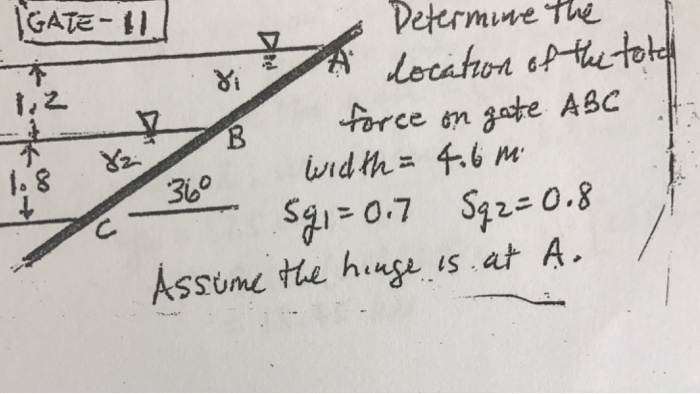 GATE-11
Determine the
location of the total
force on gate ABC
width = 4.6 m.
Sg1 = 0.7 Sg2 = 0.8
Assume the hinge is at A.
A
γ1
1.2
B
γ2
1.8
36°
C